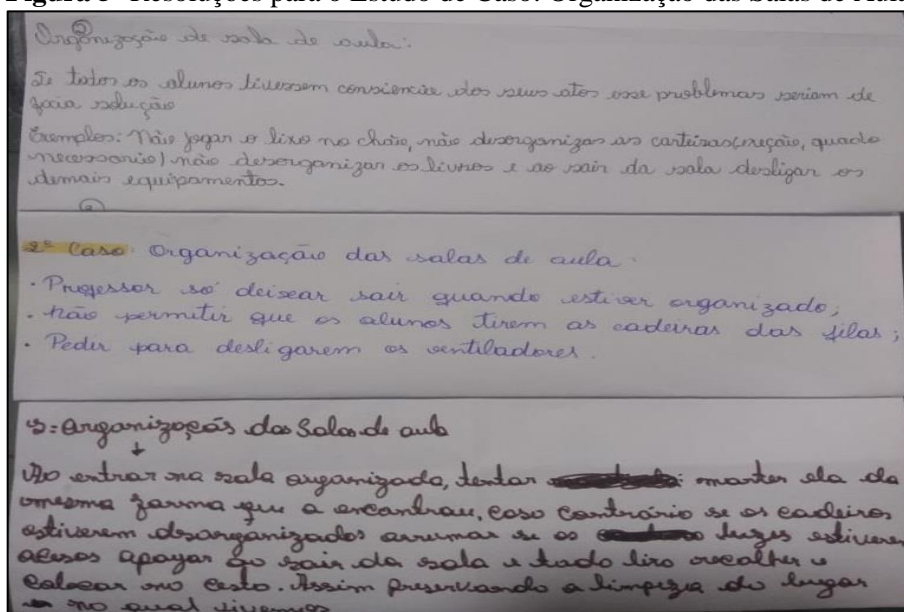 Organização de sala de aula:
Se todos os alunos tivessem consciência dos seus atos esse problemas seriam de
fácia solução
Exemplos: Não jogar o lixo no chão, não desorganizar as carteiras (exceção, quado
necessario) não desorganizar os livros e ao sair da sala desligar os
demais equipamentos.
2º Caso: Organização das salas de aula.
· Professor só deixar sair quando estiver organizado;
· não permitir que os alunos tirem as cadeiras das filas;
· Pedir para desligarem os ventiladores.
3: Organização das Salas de aula
Ao entrar na sala organizada, tentar manter ela da
mesma forma que a encontrou, caso contrário se as cadeiras
estiverem desorganizadas arrumar se as luzes estiverem
acesas apagar ao sair da sala e todo lixo recolher e
colocar no cesto. Assim preservando a limpeza do lugar
no qual vivemos